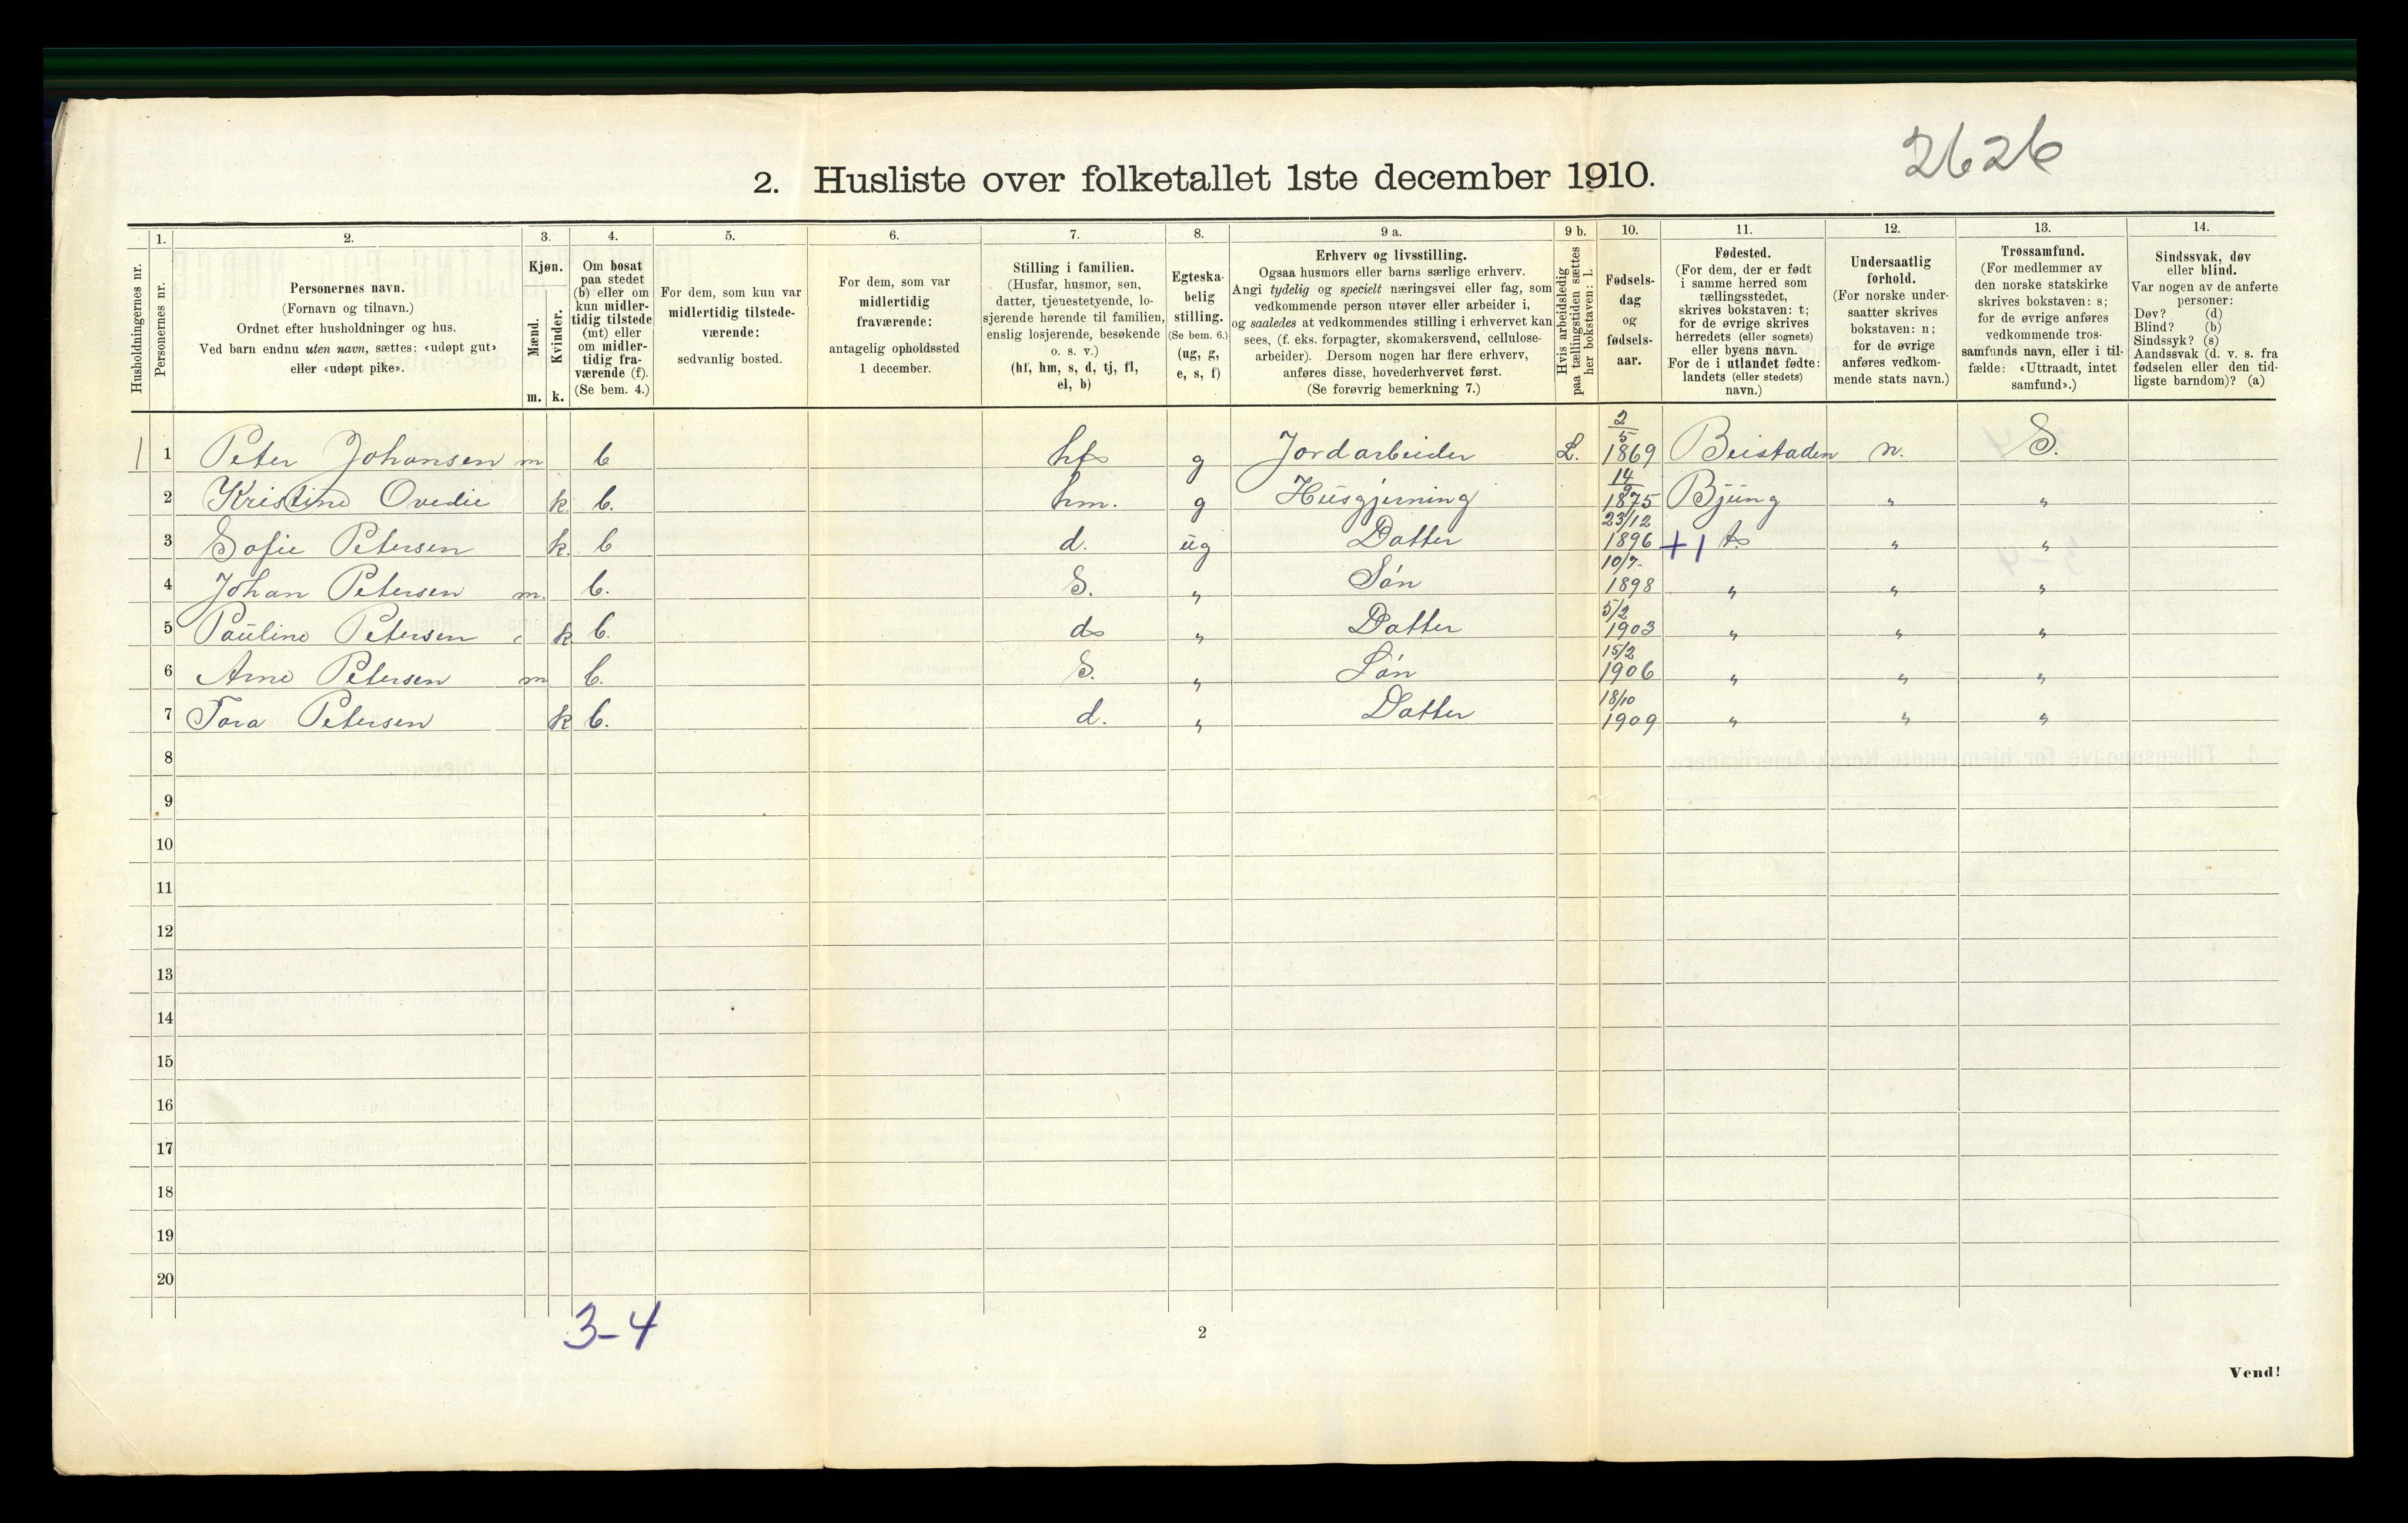 2626
2. Husliste over folketallet 1ste december 1910.
Husholdningernes nr.
1.
Personernes nr.
2.
Personernes navn.
(Fornavn og tilnavn.)
Ordnet efter husholdninger og hus.
Ved barn endnu uten navn, sættes: «udøpt gut»
eller «udøpt pike».
3.
Kjøn.
Mænd.
Kvinder.
m. k.
4.
Om bosat
paa stedet
(b) eller om
kun midler-
tidig tilstede
(mt) eller
om midler-
tidig fra-
værende (f).
(Se bem. 4.)
5.
For dem, som kun var
midlertidig tilstede-
værende:
sedvanlig bosted.
6.
For dem, som var
midlertidig
fraværende:
antagelig opholdssted
1 december.
7.
Stilling i familien.
(Husfar, husmor, søn,
datter, tjenestetyende, lo-
sjerende hørende til familien,
enslig losjerende, besøkende
o. s. v.)
(hf, hm, s, d, tj, fl,
el, b)
8.
Egteska-
belig
stilling.
(Se bem. 6.)
(ug, g,
e, s, f)
9 a.
Erhverv og livsstilling.
Ogsaa husmors eller barns særlige erhverv.
Angi tydelig og specielt næringsvei eller fag, som
vedkommende person utøver eller arbeider i,
og saaledes at vedkommendes stilling i erhvervet kan
sees, (f. eks. forpagter, skomakersvend, cellulose-
arbeider). Dersom nogen har flere erhverv,
anføres disse, hovederhvervet først.
(Se forøvrig bemerkning 7.)
9 b.
Hvis arbeidsledig
paa tællingstiden sættes
her bokstaven: l.
10.
Fødsels-
dag
og
fødsels-
aar.
11.
Fødested.
(For dem, der er født
i samme herred som
tællingsstedet,
skrives bokstaven: t;
for de øvrige skrives
herredets (eller sognets)
eller byens navn.
For de i utlandet fødte:
landets (eller stedets)
navn.)
12.
Undersaatlig
forhold.
(For norske under-
saatter skrives
bokstaven: n;
for de øvrige
anføres vedkom-
mende stats navn.)
13.
Trossamfund.
(For medlemmer av
den norske statskirke
skrives bokstaven: s;
for de øvrige anføres
vedkommende tros-
samfunds navn, eller i til-
fælde: «Uttraadt, intet
samfund».)
14.
Sindssvak, døv
eller blind.
Var nogen av de anførte
personer:
Døv? (d)
Blind? (b)
Sindssyk? (s)
Aandssvak (d. v. s. fra
fødselen eller den tid-
ligste barndom)? (a)
1 1 Peter Johansen m b hf g Jordarbeider L. 2/5 1869 Beistaden n. S.
2 Kristine Ovedie k b. hm. g Husgjerning 14/9 1875 Bjüng " "
3 Sofie Petersen k. b d. üg Datter 23/12 1896 +1 t. " "
4 Johan Petersen m. b. S. " Søn 10/7 1898 " " "
5 Pauline Petersen k b. d " Datter 5/2 1903 " " "
6 Arne Petersen m b. S. " Søn 15/2 1906 " " "
7 Tora Petersen k b. d. " Datter 18/10 1909 " " "
8
9
10
11
12
13
14
15
16
17
18
19
20
3-4
2
Vend!